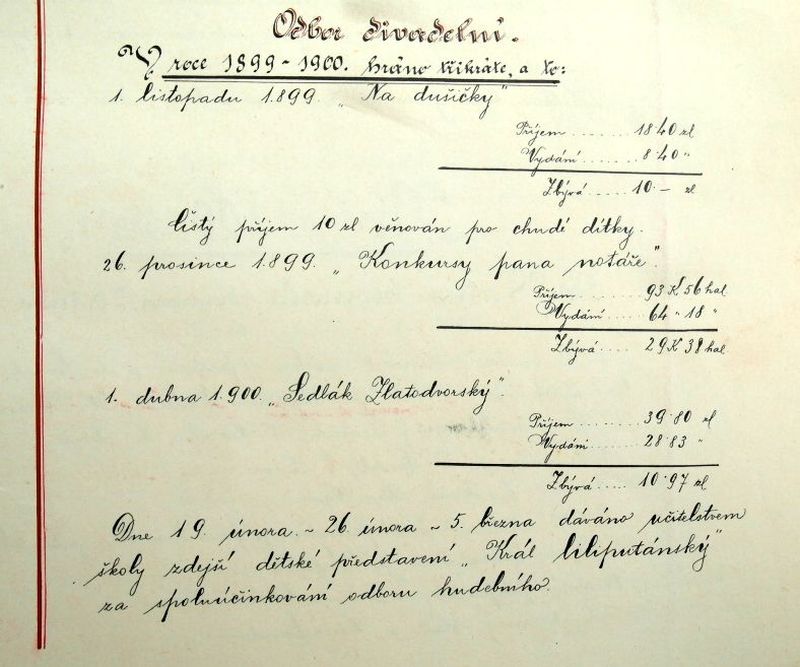 Odbor divadelní.
V roce 1899 - 1900. hráno třikráte, a to:
1. listopadu 1.899. „Na dušičky"
Příjem ....... 18·40 zl
Vydání ....... 8·40 "
Zbývá ..... 10·— zl
Čistý příjem 10 zl věnován pro chudé dítky.
26. prosince 1.899. „Konkursy pana notáře".
Příjem ....... 93 K 56 hal
Vydání ...... 64 " 18 "
Zbývá .... 29 K 38 hal.
1. dubna 1.900. „Sedlák Zlatodvorský".
Příjem ........ 39·80 zl
Vydání ...... 28·83 "
Zbývá ..... 10·97 zl
Dne 19. února. - 26. února - 5. března dáváno učitelstvem
školy zdejší dětské představení „Král liliputánský"
za spoluúčinkování odboru hudebního.